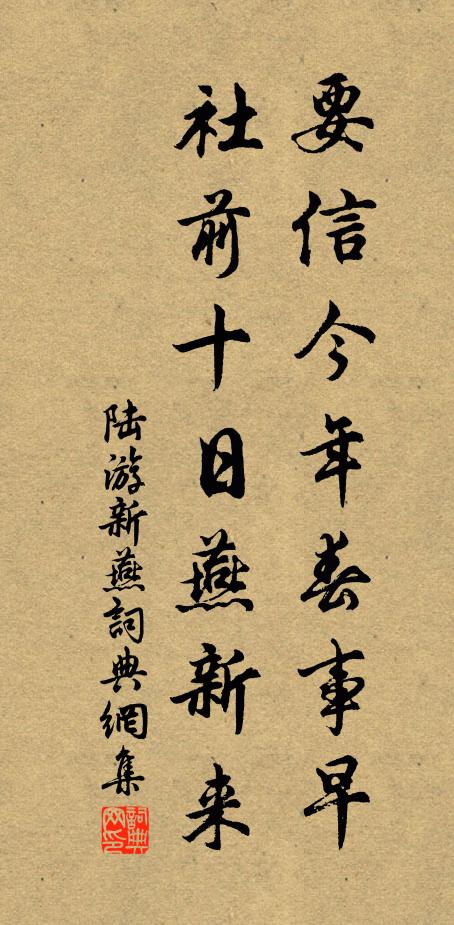 要信今年春事早
社前十日燕新来
陆游新燕詞典網集
詞典网印